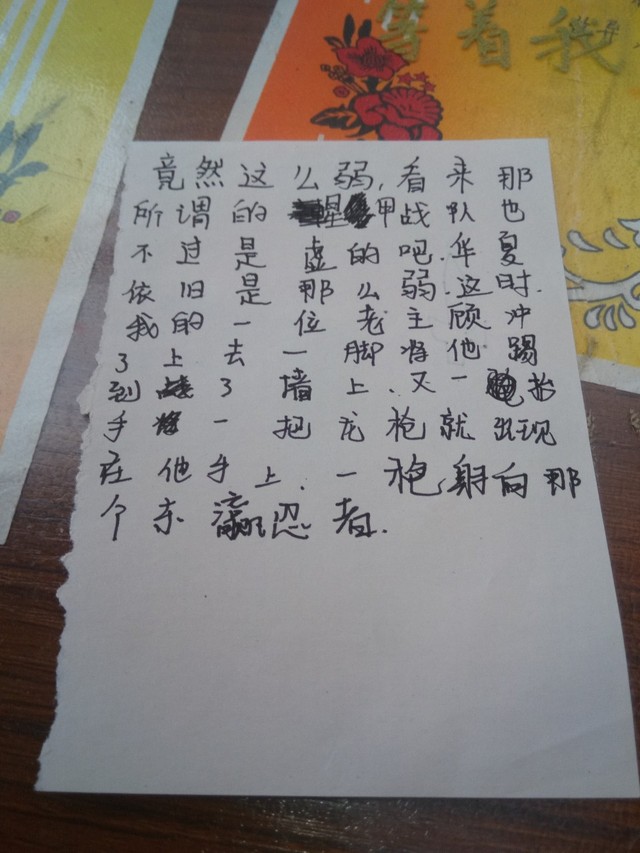 等着我
竟然这么弱,看来那
所谓的星甲战队也
不过是虚的吧.华夏
依旧是那么弱.这时.
我的一位老主顾冲
了上去一脚将他踢
到了墙上.又一抬
手一把龙枪就出现
在他手上.一枪射向那
个东瀛忍者.